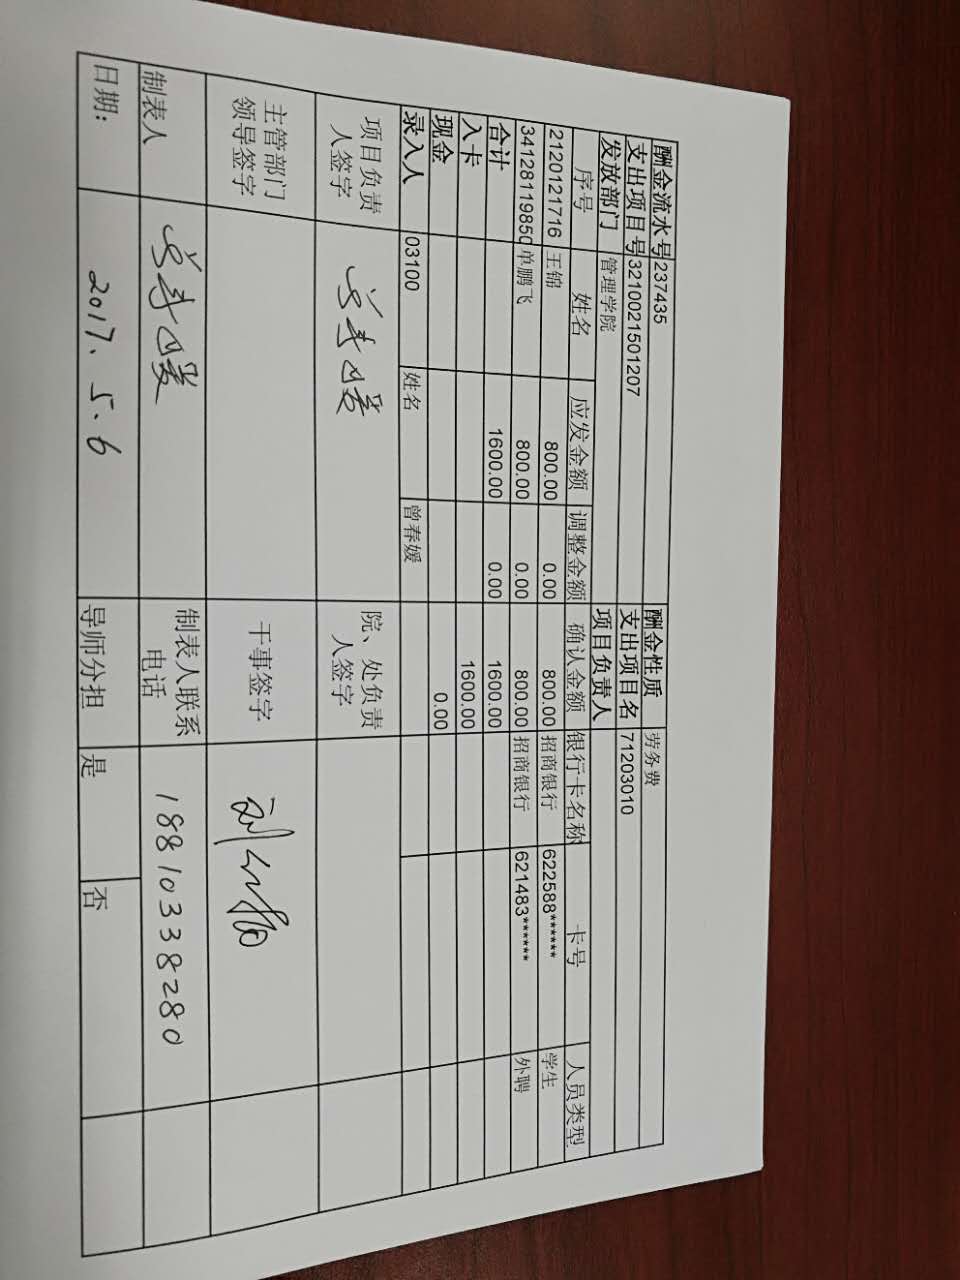 酬金流水号 237435 酬金性质 劳务费
支出项目号 3210021501207 支出项目名 71203010
发放部门 管理学院 项目负责人
序号 姓名 应发金额 调整金额 确认金额 银行卡名称 卡号 人员类型
2120121716 王锦 800.00 0.00 800.00 招商银行 622588****** 学生
3412811985 单鹏飞 800.00 0.00 800.00 招商银行 621483****** 外聘
合计 1600.00 0.00 1600.00
入卡 1600.00
现金 0.00
录入人 03100 姓名 曾春媛
项目负责人签字 院、处负责人签字
主管部门领导签字 干事签字
制表人 制表人联系电话 18810338280
日期: 2017.5.6 导师分担 是 否